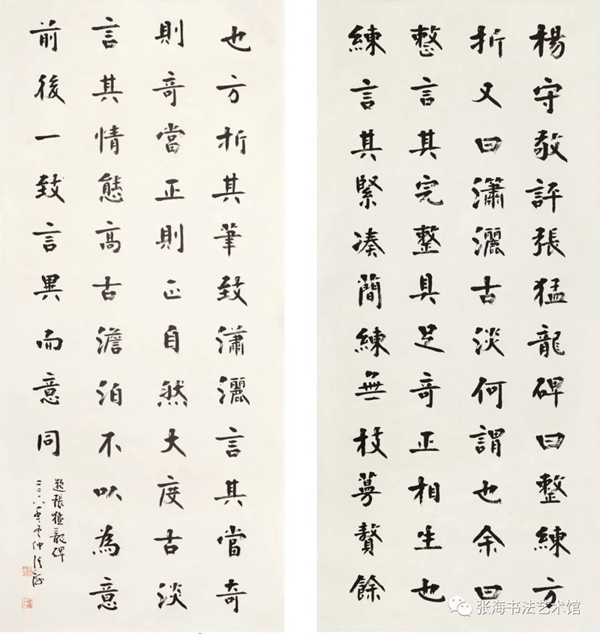 楊守敬評張猛龍碑曰整練方
折又曰瀟灑古淡何謂也余曰
整言其完整具足奇正相生也
練言其緊凑簡練無枝蔓贅餘
也方折其筆致瀟灑言其當奇
則奇當正則正自然大度古淡
言其情態高古澹泊不以為意
前後一致言異而意同
題張猛龍碑
二〇一八年 張海
张海书法艺术馆